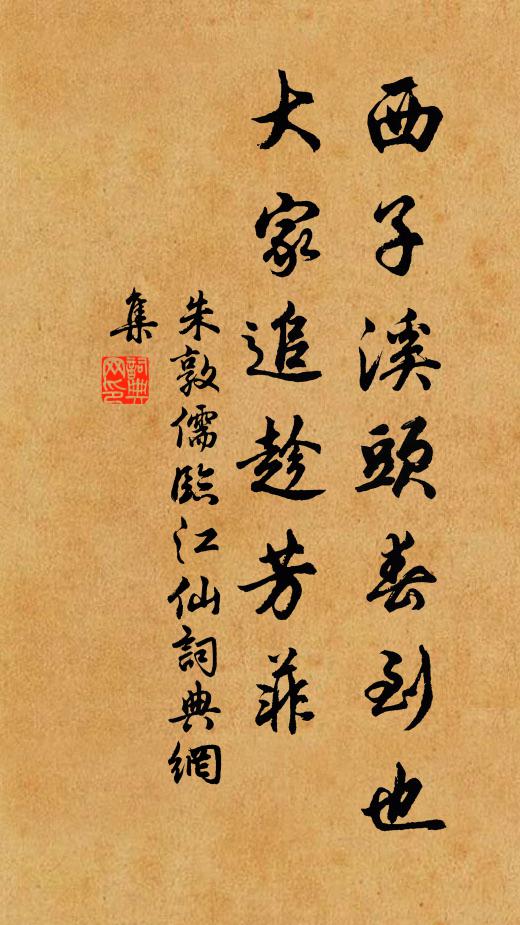 西子溪頭春到也
大家追趁芳菲
朱敦儒臨江仙詞典網
集
詞典
网印